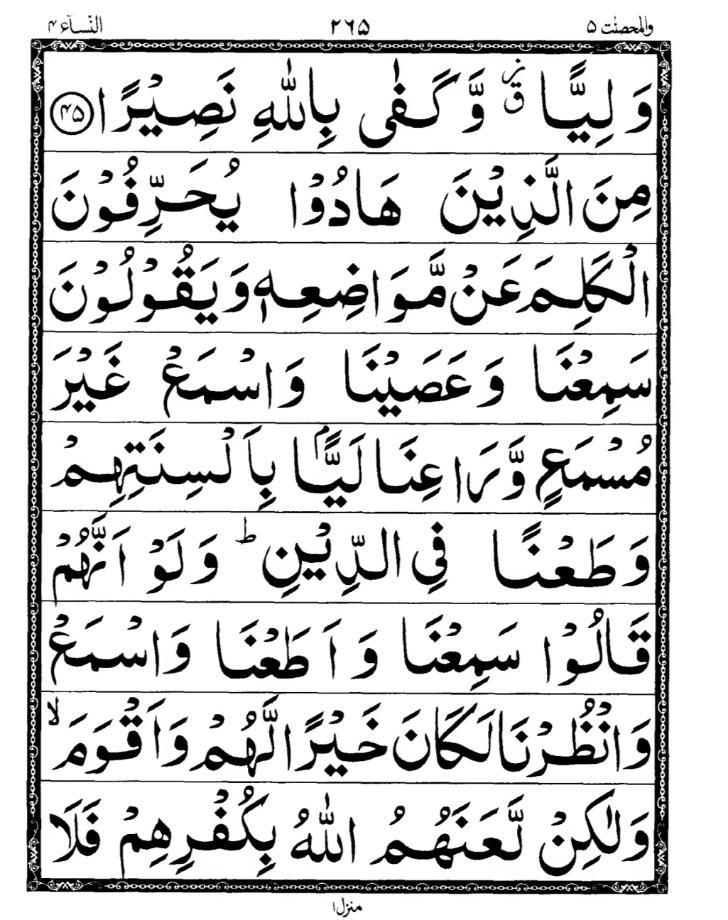 والمحصنٰت ۵ ۲٦۵ النسآء ۴
وَلِيًّا ۗۙ وَّكَفٰى بِاللّٰهِ نَصِيْرًا ﴿۴۵﴾
مِنَ الَّذِيْنَ هَادُوْا يُحَرِّفُوْنَ
الْكَلِمَ عَنْ مَّوَاضِعِهٖ وَيَقُوْلُوْنَ
سَمِعْنَا وَعَصَيْنَا وَاسْمَعْ غَيْرَ
مُسْمَعٍ وَّرَاعِنَا لَيًّاۢ بِاَلْسِنَتِهِمْ
وَطَعْنًا فِي الدِّيْنِ ؕ وَلَوْ اَنَّهُمْ
قَالُوْا سَمِعْنَا وَاَطَعْنَا وَاسْمَعْ
وَانْظُرْنَا لَكَانَ خَيْرًا لَّهُمْ وَاَقْوَمَ ۙ
وَلٰكِنْ لَّعَنَهُمُ اللّٰهُ بِكُفْرِهِمْ فَلَا
منزل ۱